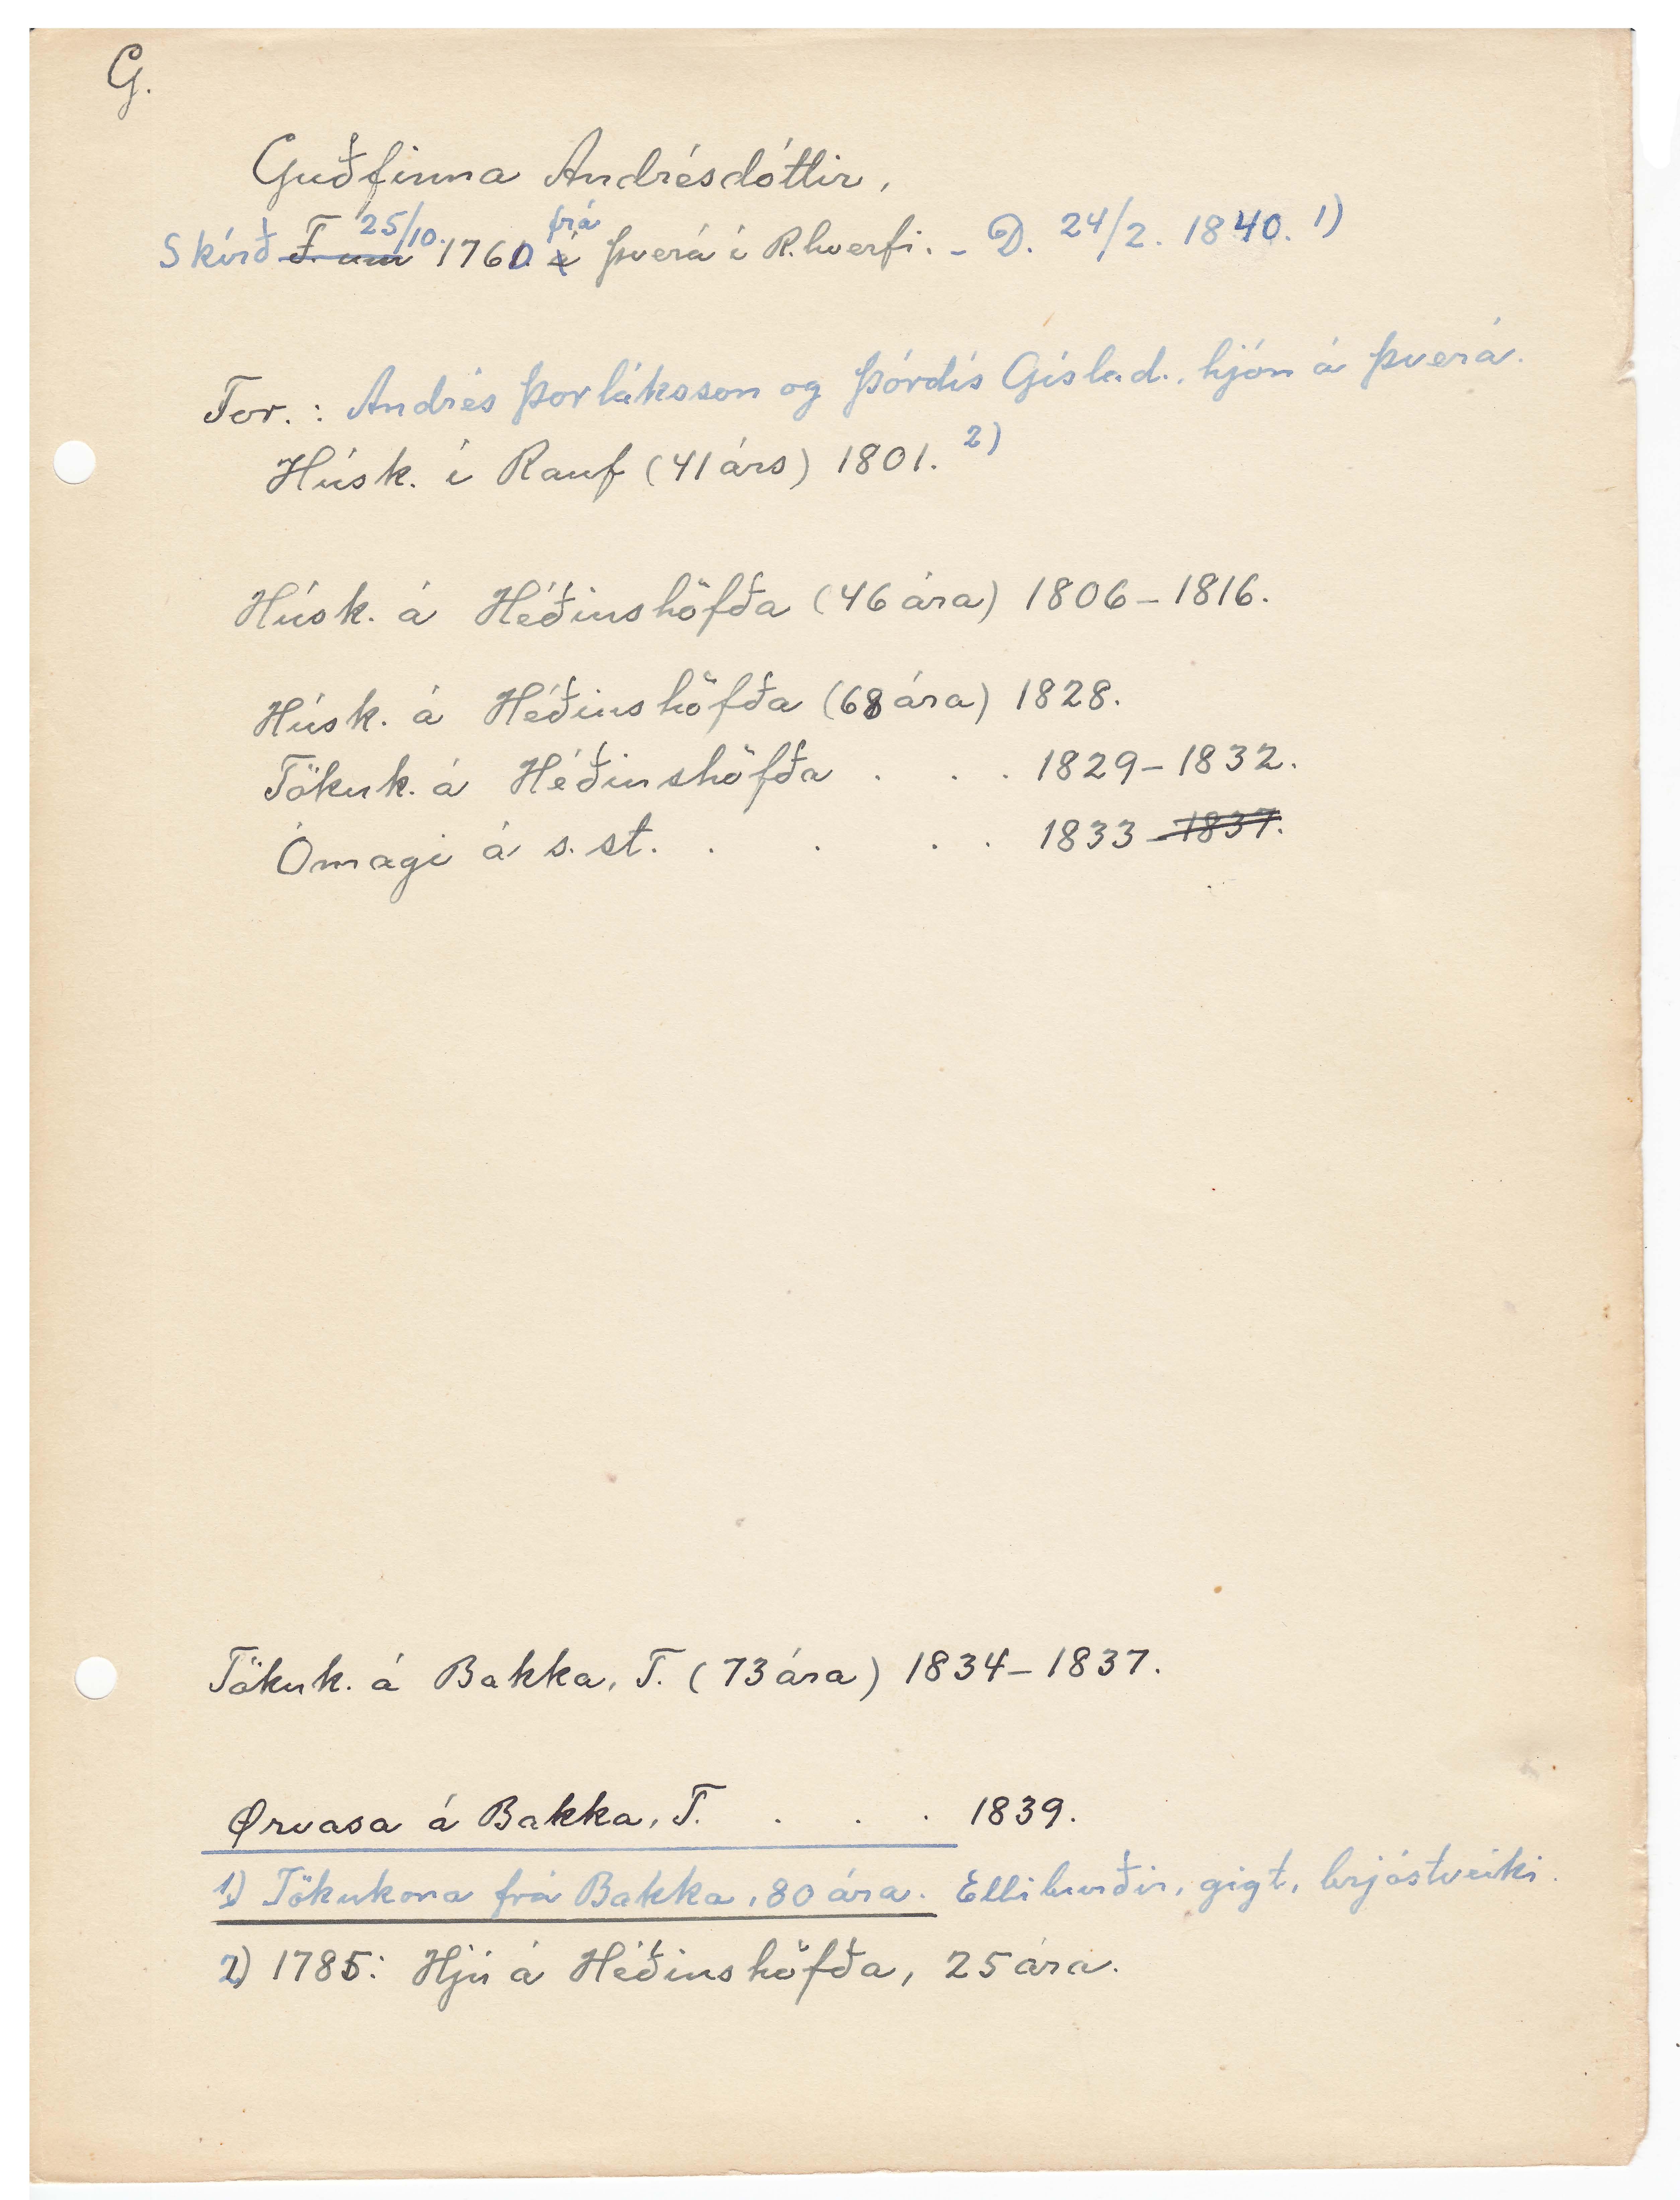 G.
Guðfinna Andrésdóttir,
Skírð F. um 25/10. 1760 á frá Þverá í R.hverfi. - D. 24/2. 1840. 1)
For.: Andrés Þorláksson og Þórdís Gíslad., hjón á Þverá.
Húsk. í Rauf (41 árs) 1801. 2)
Húsk. á Héðinshöfða (46 ára) 1806-1816.
Húsk. á Héðinshöfða (68 ára) 1828.
Tökuk. á Héðinshöfða . . . 1829-1832.
Ómagi á s. st. . . . . 1833-1837.
Tökuk. á Bakka, T. (73 ára) 1834-1837.
Ørvasa á Bakka, T. . . . 1839.
1) Tökukona frá Bakka, 80 ára. Elliburðir, gigt, brjóstveiki.
2) 1785: Hjú á Héðinshöfða, 25 ára.